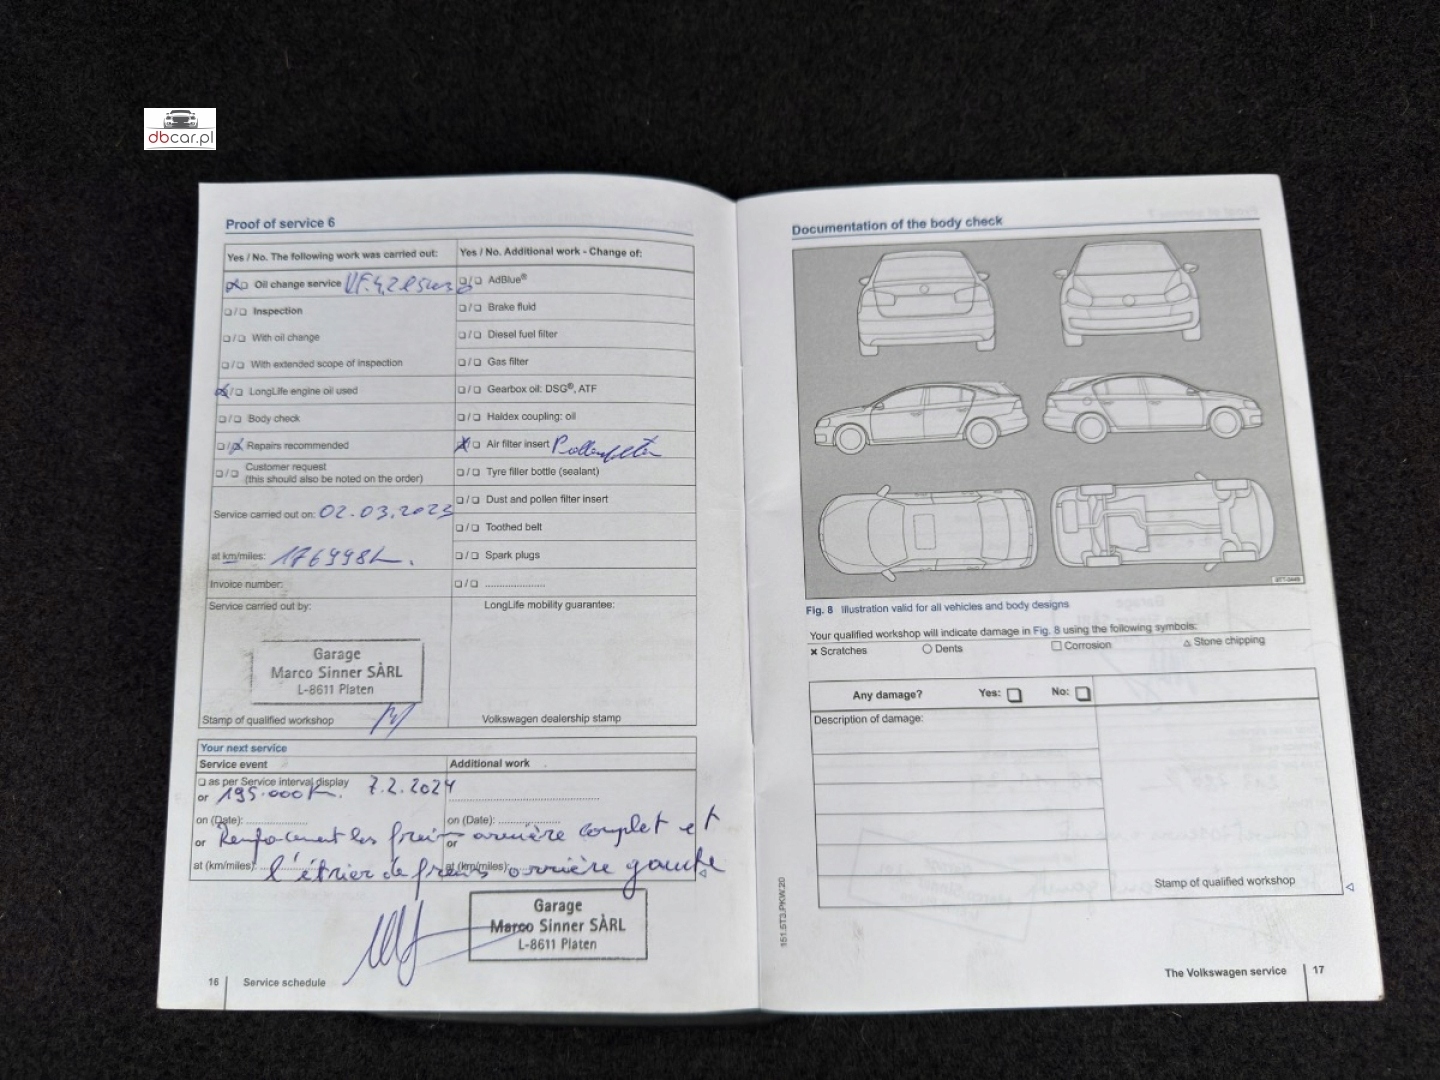 dbcar.pl
Proof of service 6
Yes / No. The following work was carried out:
Oil change service
Inspection
With oil change
With extended scope of inspection
LongLife engine oil used
Body check
Repairs recommended
Customer request
(this should also be noted on the order)
Service carried out on: 02.03.2023
at km/miles:
Invoice number:
Service carried out by:
Garage
Marco Sinner SÀRL
L-8611 Platen
Stamp of qualified workshop
Yes / No. Additional work - Change of:
AdBlue®
Brake fluid
Diesel fuel filter
Gas filter
Gearbox oil: DSG®, ATF
Haldex coupling: oil
Air filter insert Pollenfilter
Tyre filler bottle (sealant)
Dust and pollen filter insert
Toothed belt
Spark plugs
LongLife mobility guarantee:
Volkswagen dealership stamp
Your next service
Service event
Additional work
as per Service interval display
or 195.000 K. 7.2.2024
on (Date):
on (Date):
or les freins arrière complet et
or
at (km/miles): l'étrier de freins arrière gauche
at (km/miles):
Garage
Marco Sinner SÀRL
L-8611 Platen
16 Service schedule
Documentation of the body check
Fig. 8 Illustration valid for all vehicles and body designs
Your qualified workshop will indicate damage in Fig. 8 using the following symbols:
Scratches Dents Corrosion Stone chipping
Any damage? Yes: No:
Description of damage:
Stamp of qualified workshop
151.5T3.PKW.20
The Volkswagen service 17